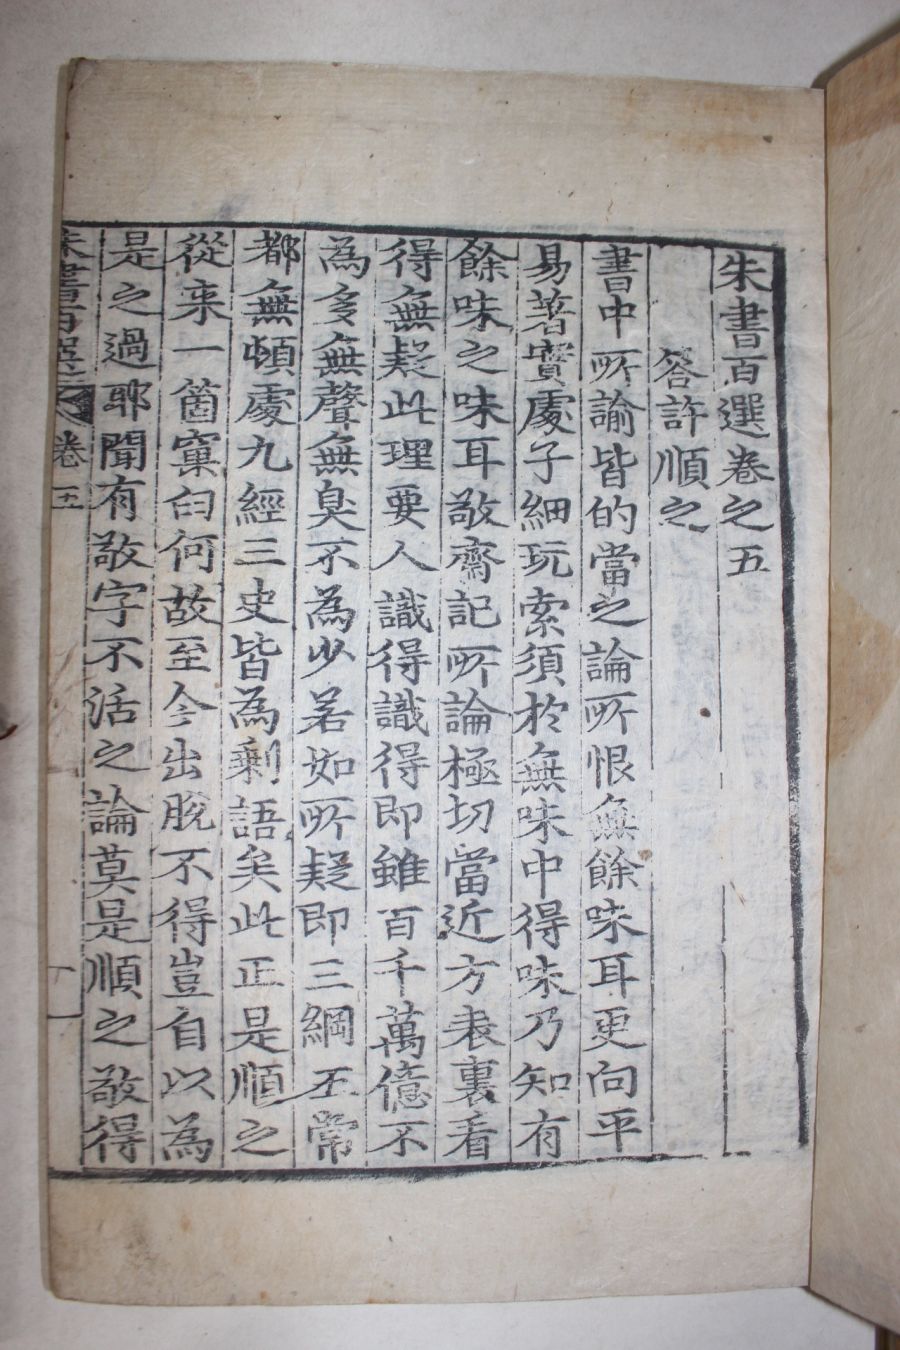 朱書百選卷之五
答許順之
書中所諭皆的當之論所恨無餘味耳更向平
易著實處子細玩索須於無味中得味乃知有
餘味之味耳敬齋記所論極切當近方表裏看
得無疑此理要人識得識得即雖百千萬億不
為多無聲無臭不為少若如所疑即三綱五常
都無頓處九經三史皆為剩語矣此正是順之
從來一箇窠臼何故至今出脫不得豈自以為
是之過耶聞有敬字不活之論莫是順之敬得
朱書百選 卷五